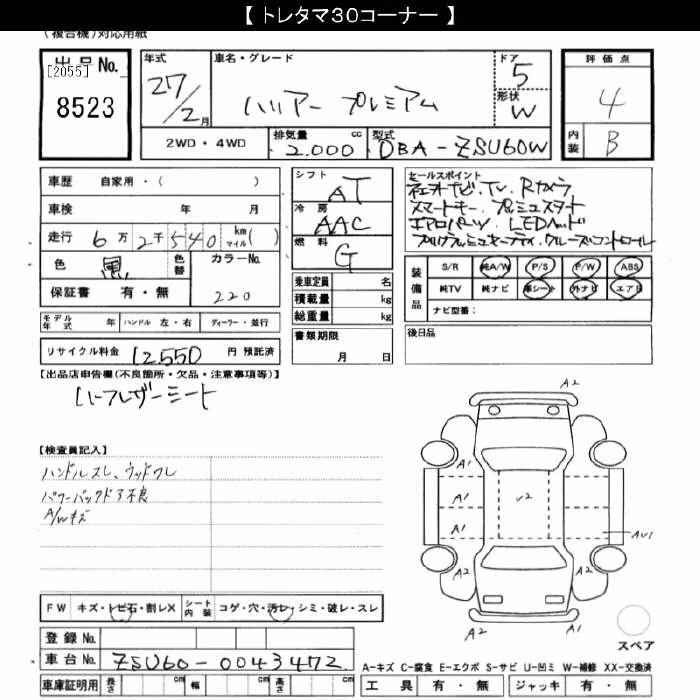 【 トレタマ30コーナー 】
(複合機)対応用紙
出品No.
[2055]
8523
年式
27/2月
車名・グレード
ハリアー プレミアム
ドア
5
形状
W
評価点
4
内装
B
2WD・4WD
排気量 cc
2.000
型式
DBA-ZSU60W
車歴 自家用・( )
車検 年 月
走行 6万2千540 km マイル( )
色 黒 色替 カラーNo.
保証書 有・無 220
シフト
AT
冷房
AAC
燃料
G
乗車定員 名
積載量 kg
総重量 kg
書類期限
月 日
セールスポイント
ナビ、TV、Rカメラ
スマートキー、プッシュスタート
エアロパーツ、LEDヘッド
クルーズコントロール
装備品
S/R 純A/W P/S P/W ABS
純TV 純ナビ 革シート 外ナビ エアB
ナビ型番:
後日品
モデル年式 年 ハンドル 左・右 ディーラー・並行
リサイクル料金 12550 円 預託済
【出品店申告欄(不良箇所・欠品・注意事項等)】
ハーフレザーシート
【検査員記入】
ハンドルスレ、ウッドワレ
パワーバックドア不良
A/Wキズ
A2
A1
A1
A1
√2
AU1
A2
A2
A2
A2
スペア
FW キズ・トビ石・割レX シート内装 コゲ・穴・汚レ・シミ・破レ・スレ
登録No.
車台No. ZSU60-0043472
車庫証明用 長さ cm 幅 cm 高さ cm
A-キズ C-腐食 E-エクボ S-サビ U-凹ミ W-補修 XX-交換済
工具 有・無 ジャッキ 有・無